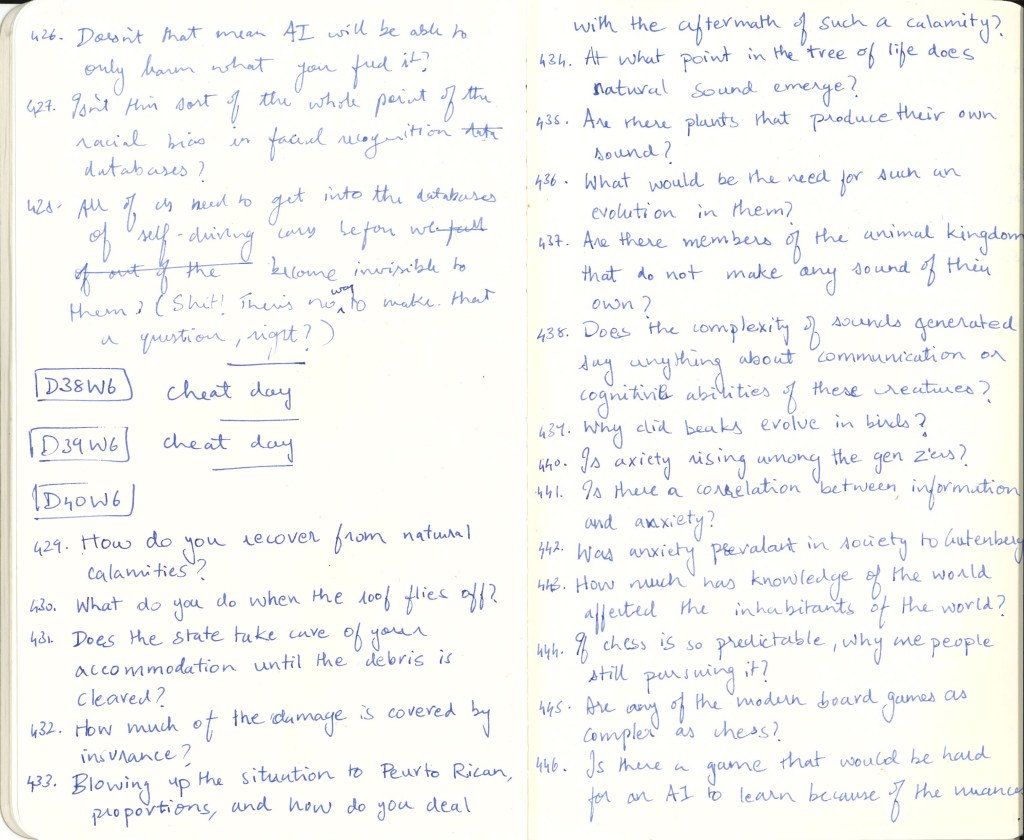 426. Doesn't that mean AI will be able to
only harm what you feed it?
427. Isn't this sort of the whole point of the
racial bias in facial recognition data
databases?
428. All of us need to get into the databases
of self-driving cars before we fall
of out of the become invisible to
them? (Shit! There's no way to make that
a question, right?)
D38W6 cheat day
D39W6 cheat day
D40W6
429. How do you recover from natural
calamities?
430. What do you do when the roof flies off?
431. Does the state take care of your
accommodation until the debris is
cleared?
432. How much of the damage is covered by
insurance?
433. Blowing up the situation to Peurto Rican,
proportions, and how do you deal
with the aftermath of such a calamity?
434. At what point in the tree of life does
natural sound emerge?
435. Are there plants that produce their own
sound?
436. What would be the need for such an
evolution in them?
437. Are there members of the animal kingdom
that do not make any sound of their
own?
438. Does the complexity of sounds generated
say anything about communication or
cognitive abilities of these creatures?
439. Why did beaks evolve in birds?
440. Is axiety rising among the gen z'ers?
441. Is there a correlation between information
and anxiety?
442. Was anxiety prevalant in society to Gutenberg
443. How much has knowledge of the world
affected the inhabitants of the world?
444. If chess is so predictable, why are people
still pursuing it?
445. Are any of the modern board games as
complex as chess?
446. Is there a game that would be hard
for an AI to learn because of the nuances